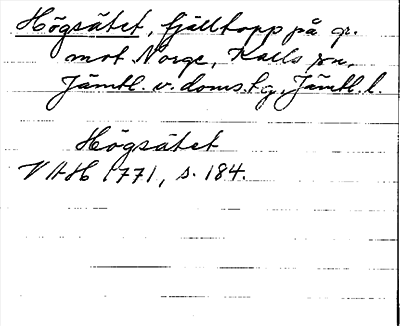 Högsätet, fjälltopp på gr.
mot Norge, Kalls sn,
Jämtl. v. doms.tg, Jämtl. l.
Högsätet
VAH 1771, s. 184.